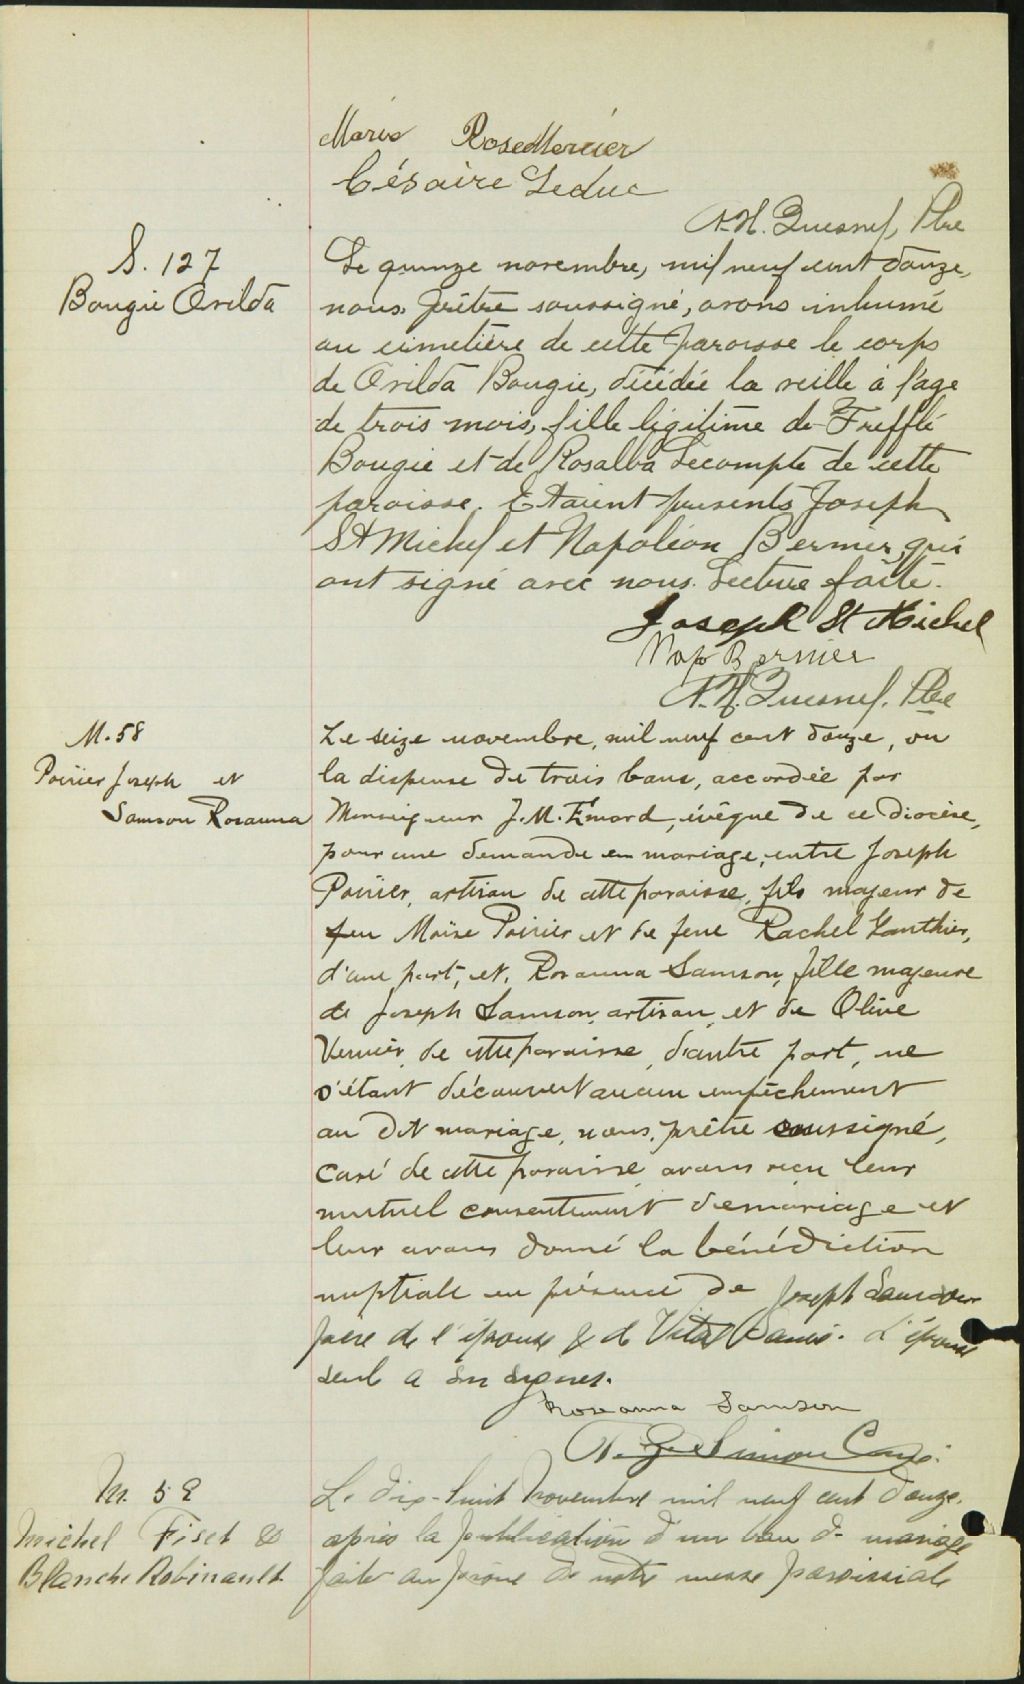 Marie Rose Mercier
Césaire Leduc
A.H. Quesnel, Ptre
S. 127
Bougie Orilda
Le quinze novembre, mil neuf cent douze,
nous, prêtre soussigné, avons inhumé
au cimetière de cette paroisse le corps
de Orilda Bougie, décédée la veille à l'age
de trois mois, fille légitime de Trefflé
Bougie et de Rosalba Lecompte de cette
paroisse. Etaient présents Joseph
St Michel et Napoléon Bernier, qui
ont signé avec nous. Lecture faite.
Joseph St Michel
Nap Bernier
A.H. Quesnel, Ptre
M. 58
Poirier Joseph et
Samson Rosanna
Le seize novembre, mil neuf cent douze, vu
la dispense de trois bans, accordée par
Monseigneur J.M. Émard, évêque de ce diocèse,
pour une demande en mariage, entre Joseph
Poirier, artisan de cette paroisse, fils majeur de
feu Moïse Poirier et de feue Rachel Gauthier,
d'une part, et, Rosanna Samson, fille majeure
de Joseph Samson, artisan, et de Olive
de cette paroisse, d'autre part, ne
s'étant découvert aucun empêchement
au dit mariage, nous, prêtre soussigné,
curé de cette paroisse avons reçu leur
mutuel consentement de mariage et
leur avons donné la bénédiction
nuptiale en présence de Joseph Samson
père de l'épouse & de Vital L'épouse
seule a su signer.
Rose anna Samson
Curé.
M. 59
Michel Fiset &
Blanche Robinault
Le dix-huit Novembre mil neuf cent douze,
après la publication d'un ban de mariage
faite au prône de notre messe paroissiale